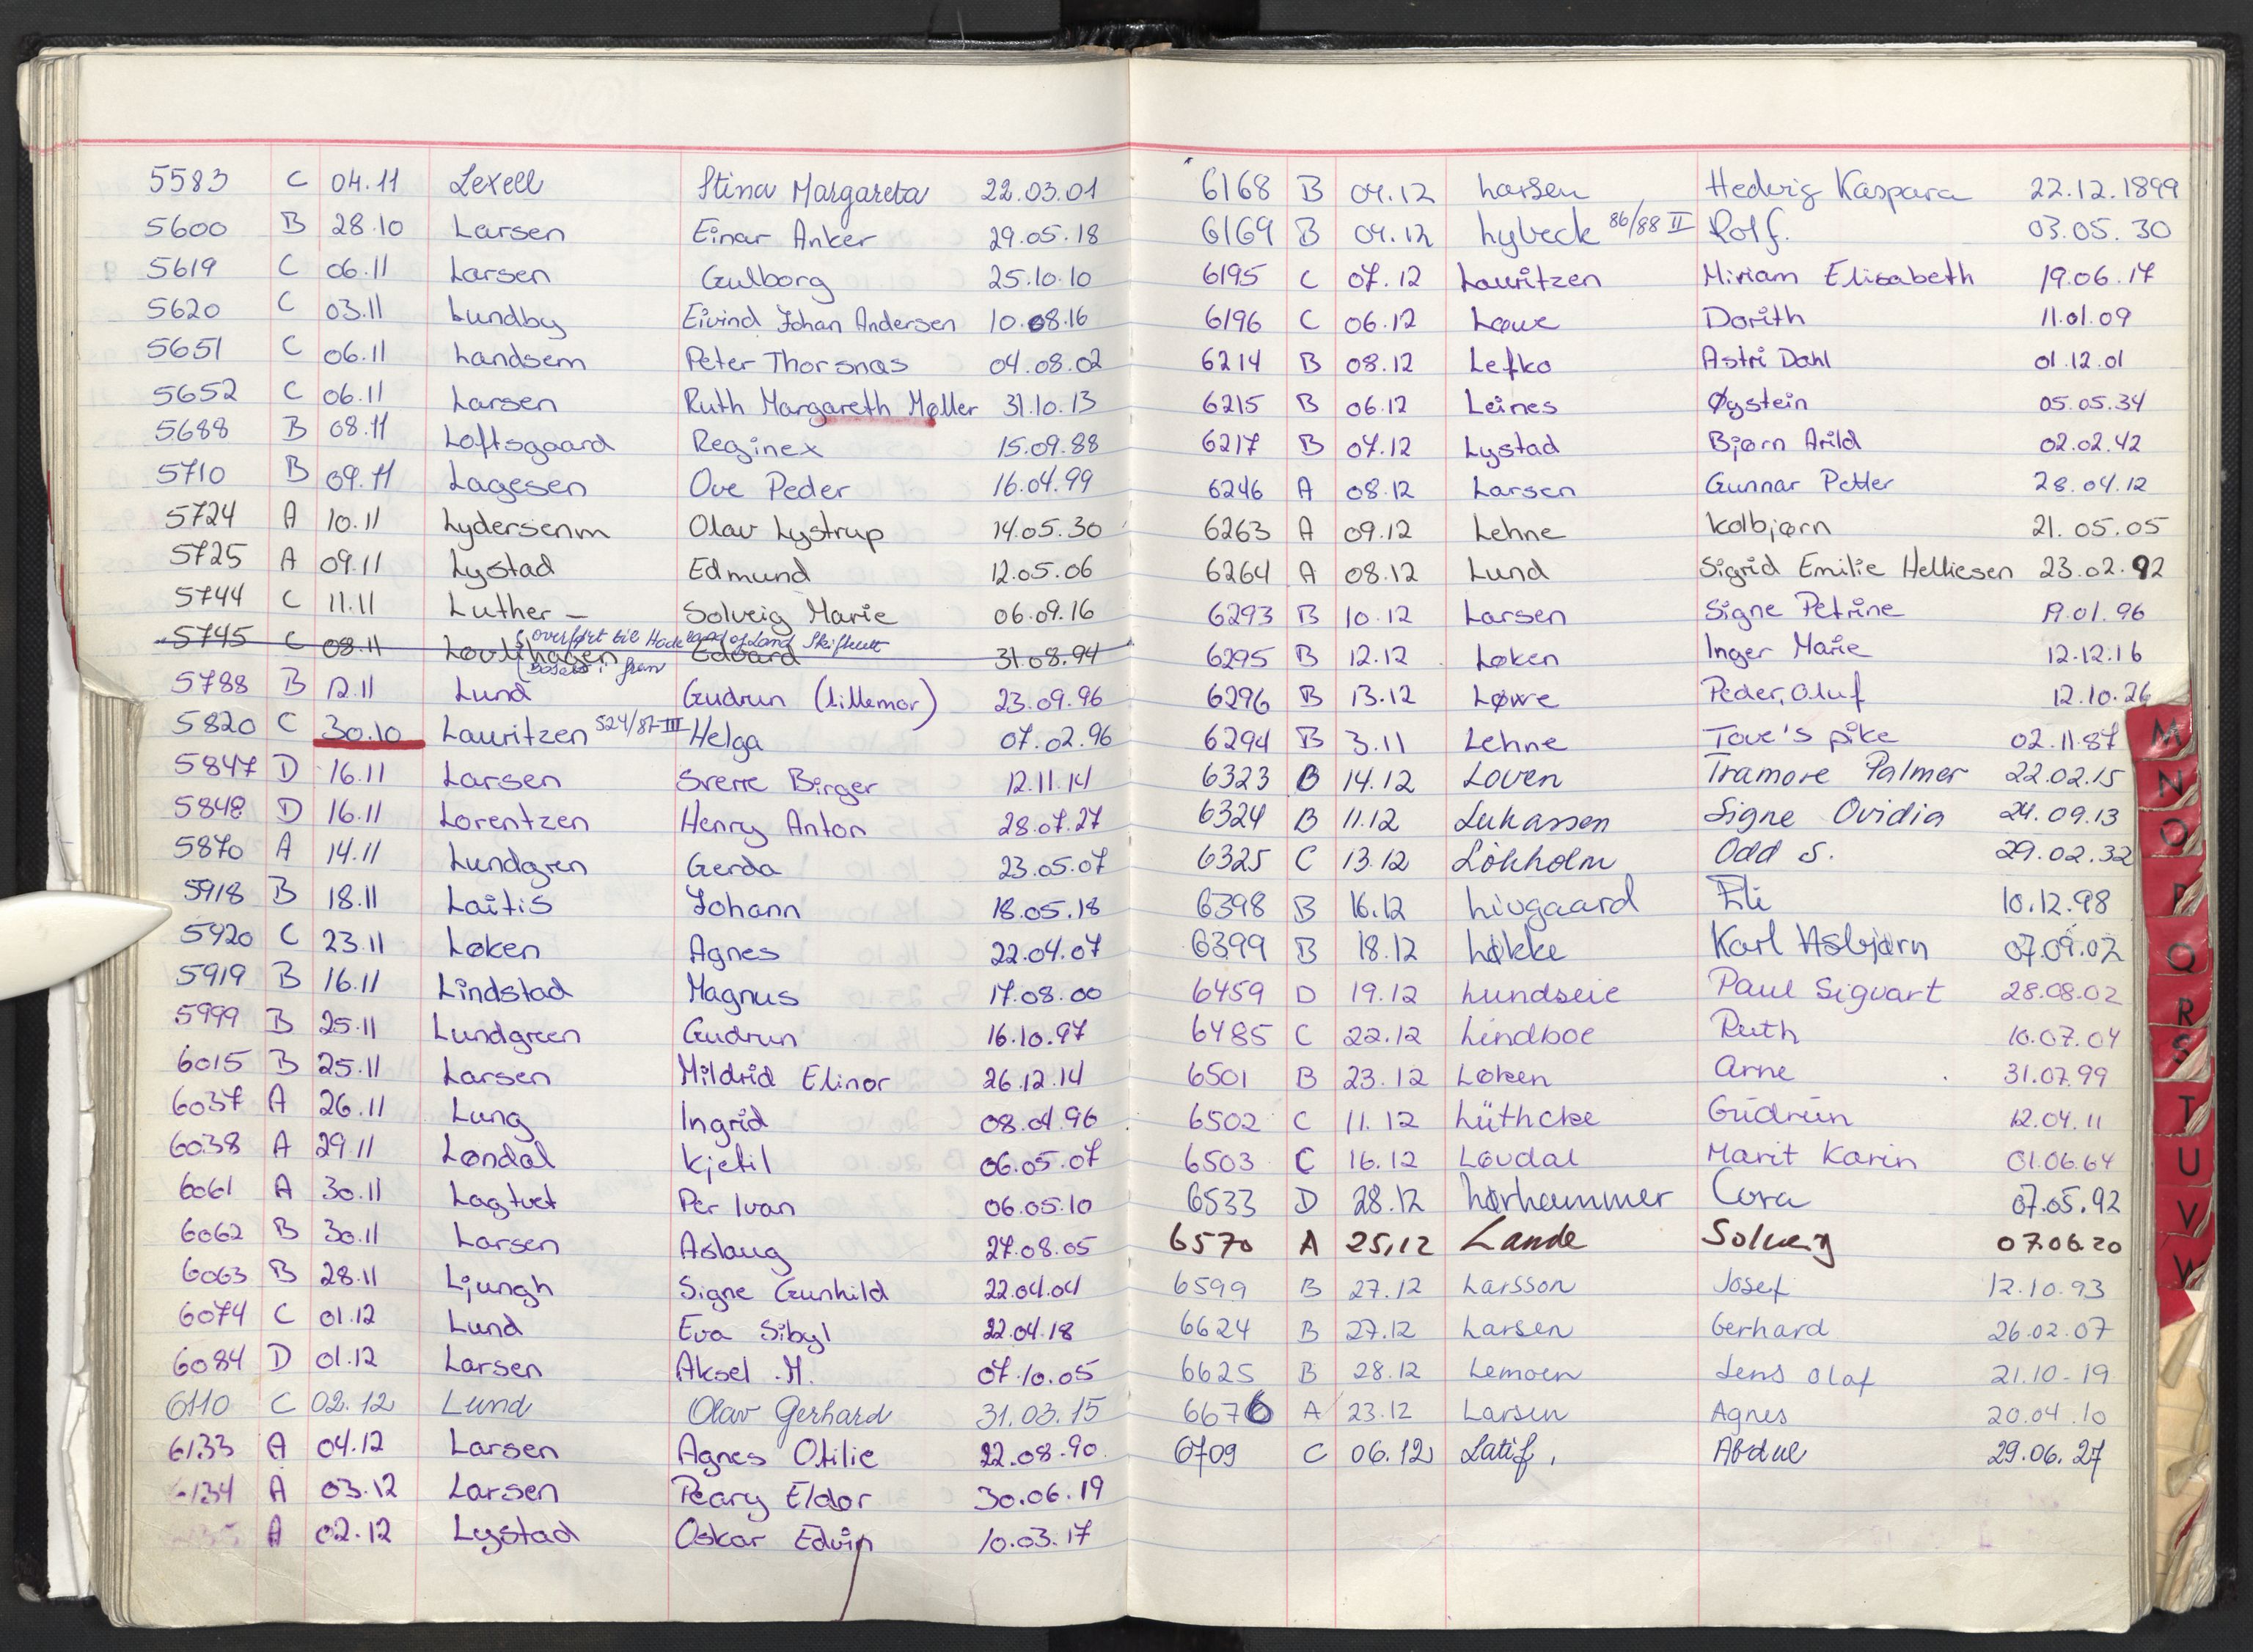 5583 C 04.11 Lexell Stina Margareta 22.03.01
5600 B 28.10 Larsen Einar Anker 29.05.18
5619 C 06.11 Larsen Gulborg 25.10.10
5620 C 03.11 Lundby Eivind Johan Andersen 10.08.16
5651 C 06.11 Landsem Peter Thorsnæs 04.08.02
5652 C 06.11 Larsen Ruth Margareth Møller 31.10.13
5688 B 08.11 Loftsgaard Reginex 15.09.88
5710 B 09.11 Lagesen Ove Peder 16.04.99
5724 A 10.11 Lydersenm Olav Lystrup 14.05.30
5725 A 09.11 Lystad Edmund 12.05.06
5744 C 11.11 Luther – Solveig Marie 06.09.16
overført til Hadeland og Land Skifterett
5745 C 08.11 Edvard 31.08.94
Bosatt i Gran
5788 B 12.11 Lund Gudrun (Lillemor) 23.09.96
5820 C 30.10 Lauritzen 524/87-III Helga 07.02.96
5847 D 16.11 Larsen Sverre Birger 12.11.14
5848 D 16.11 Lorentzen Henry Anton 28.07.27
5870 A 14.11 Lundgren Gerda 23.05.07
5918 B 18.11 Laitis Johann 18.05.18
5920 C 23.11 Løken Agnes 22.04.07
5919 B 16.11 Lindstad Magnus 17.08.00
5999 B 25.11 Lundgreen Gudrun 16.10.97
6015 B 25.11 Larsen Mildrid Elinor 26.12.14
6037 A 26.11 Lung Ingrid 08.04.96
6038 A 29.11 Løndal Kjetil 06.05.07
6061 A 30.11 Lagtvet Per Ivan 06.05.10
6062 B 30.11 Larsen Aslaug 27.08.05
6063 B 28.11 Ljungh Signe Gunhild 22.04.04
6074 C 01.12 Lund Eva Sibyl 22.04.18
6084 D 01.12 Larsen Aksel M. 07.10.05
6110 C 02.12 Lund Olav Gerhard 31.03.15
6133 A 04.12 Larsen Agnes Otilie 22.08.90
6134 A 03.12 Larsen Peary Eldor 30.06.19
A 02.12 Lystad Oskar Edvin 10.03.17
6168 B 04.12 Larsen Hedvig Kaspara 22.12.1899
6169 B 04.12 Lybeck 86/88 II Rolf. 03.05.30
6195 C 07.12 Lauritzen Miriam Elisabeth 19.06.17
6196 C 06.12 Løwe Dorith 11.01.09
6214 B 08.12 Lefko Astri Dahl 01.12.01
6215 B 06.12 Leines Øystein 05.05.34
6217 B 07.12 Lystad Bjørn Arild 02.02.42
6246 A 08.12 Larsen Gunnar Petter 28.04.12
6263 A 09.12 Lehne Kolbjørn 21.05.05
6264 A 08.12 Lund Sigrid Emilie Helliesen 23.02.92
6293 B 10.12 Larsen Signe Petrine 19.01.96
6295 B 12.12 Løken Inger Marie 12.12.16
6296 B 13.12 Løwe Peder, Oluf 12.10.26
6294 B 3.11 Lehne Tove's pike 02.11.87
6323 B 14.12 Loven Tramore Palmer 22.02.15
6324 B 11.12 Lukassen Signe Ovidia 24.09.13
6325 C 13.12 Lökholm Odd S. 29.02.32
6398 B 16.12 Livgaard Eli 10.12.98
6399 B 18.12 Løkke Karl Asbjørn 07.09.02
6459 D 19.12 Lundseie Paul Sigvart 28.08.02
6485 C 22.12 Lindboe Ruth 10.07.04
6501 B 23.12 Løken Arne 31.07.99
6502 C 11.12 Lüthcke Gudrun 12.04.11
6503 C 16.12 Løvdal Marit Karin 01.06.64
6533 D 28.12 Lørhammer Cora 07.05.92
6570 A 25.12 Lande Solveig 07.06.20
6599 B 27.12 Larsson Josef 12.10.93
6624 B 27.12 Larsen Gerhard 26.02.07
6625 B 28.12 Lemoen Jens Olaf 21.10-19
6676 A 23.12 Larsen Agnes 20.04.10
6709 C 06.12 Latif, Abdul 29.06.27
M
N
O
P
Q
R
S
T
U
V
W